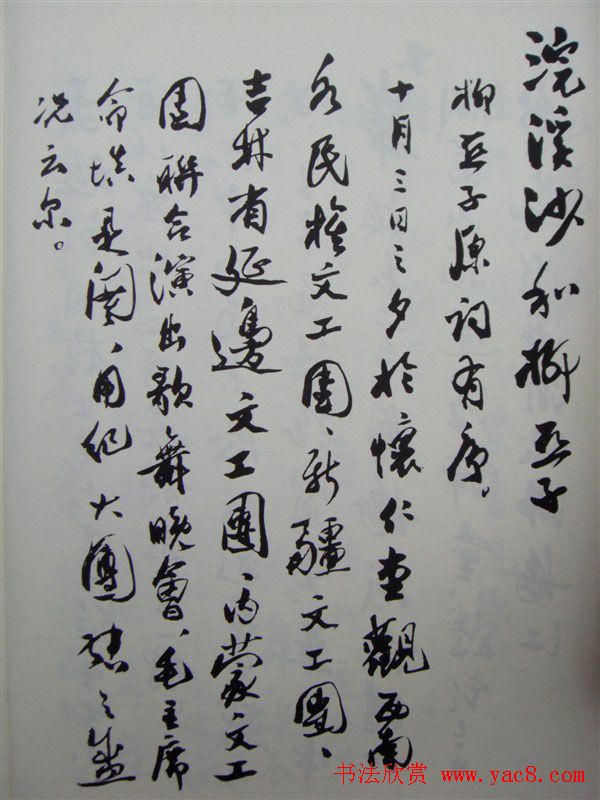 浣溪沙和柳亚子
柳亚子原词有序。
十月三日之夕於懷仁堂觀西南
各民族文工團、新疆文工團、
吉林省延邊文工團、内蒙文工
團聯合演出歌舞晚會、毛主席
命填是阕、用纪大團结之盛
况云尔。
书法欣赏 www.yac8.com